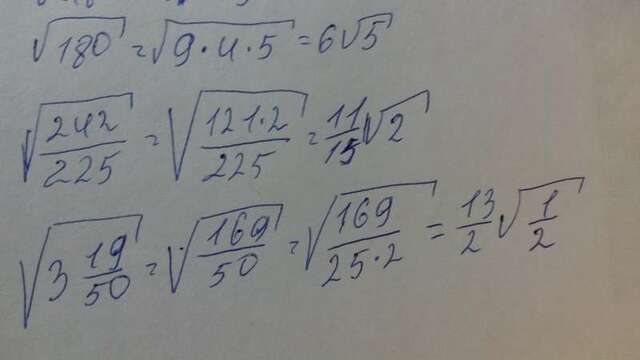 √180 = √9·4·5 = 6√5
√242/225 = √121·2/225 = 11/15√2
√3 19/50 = √169/50 = √169/25·2 = 13/2√1/2